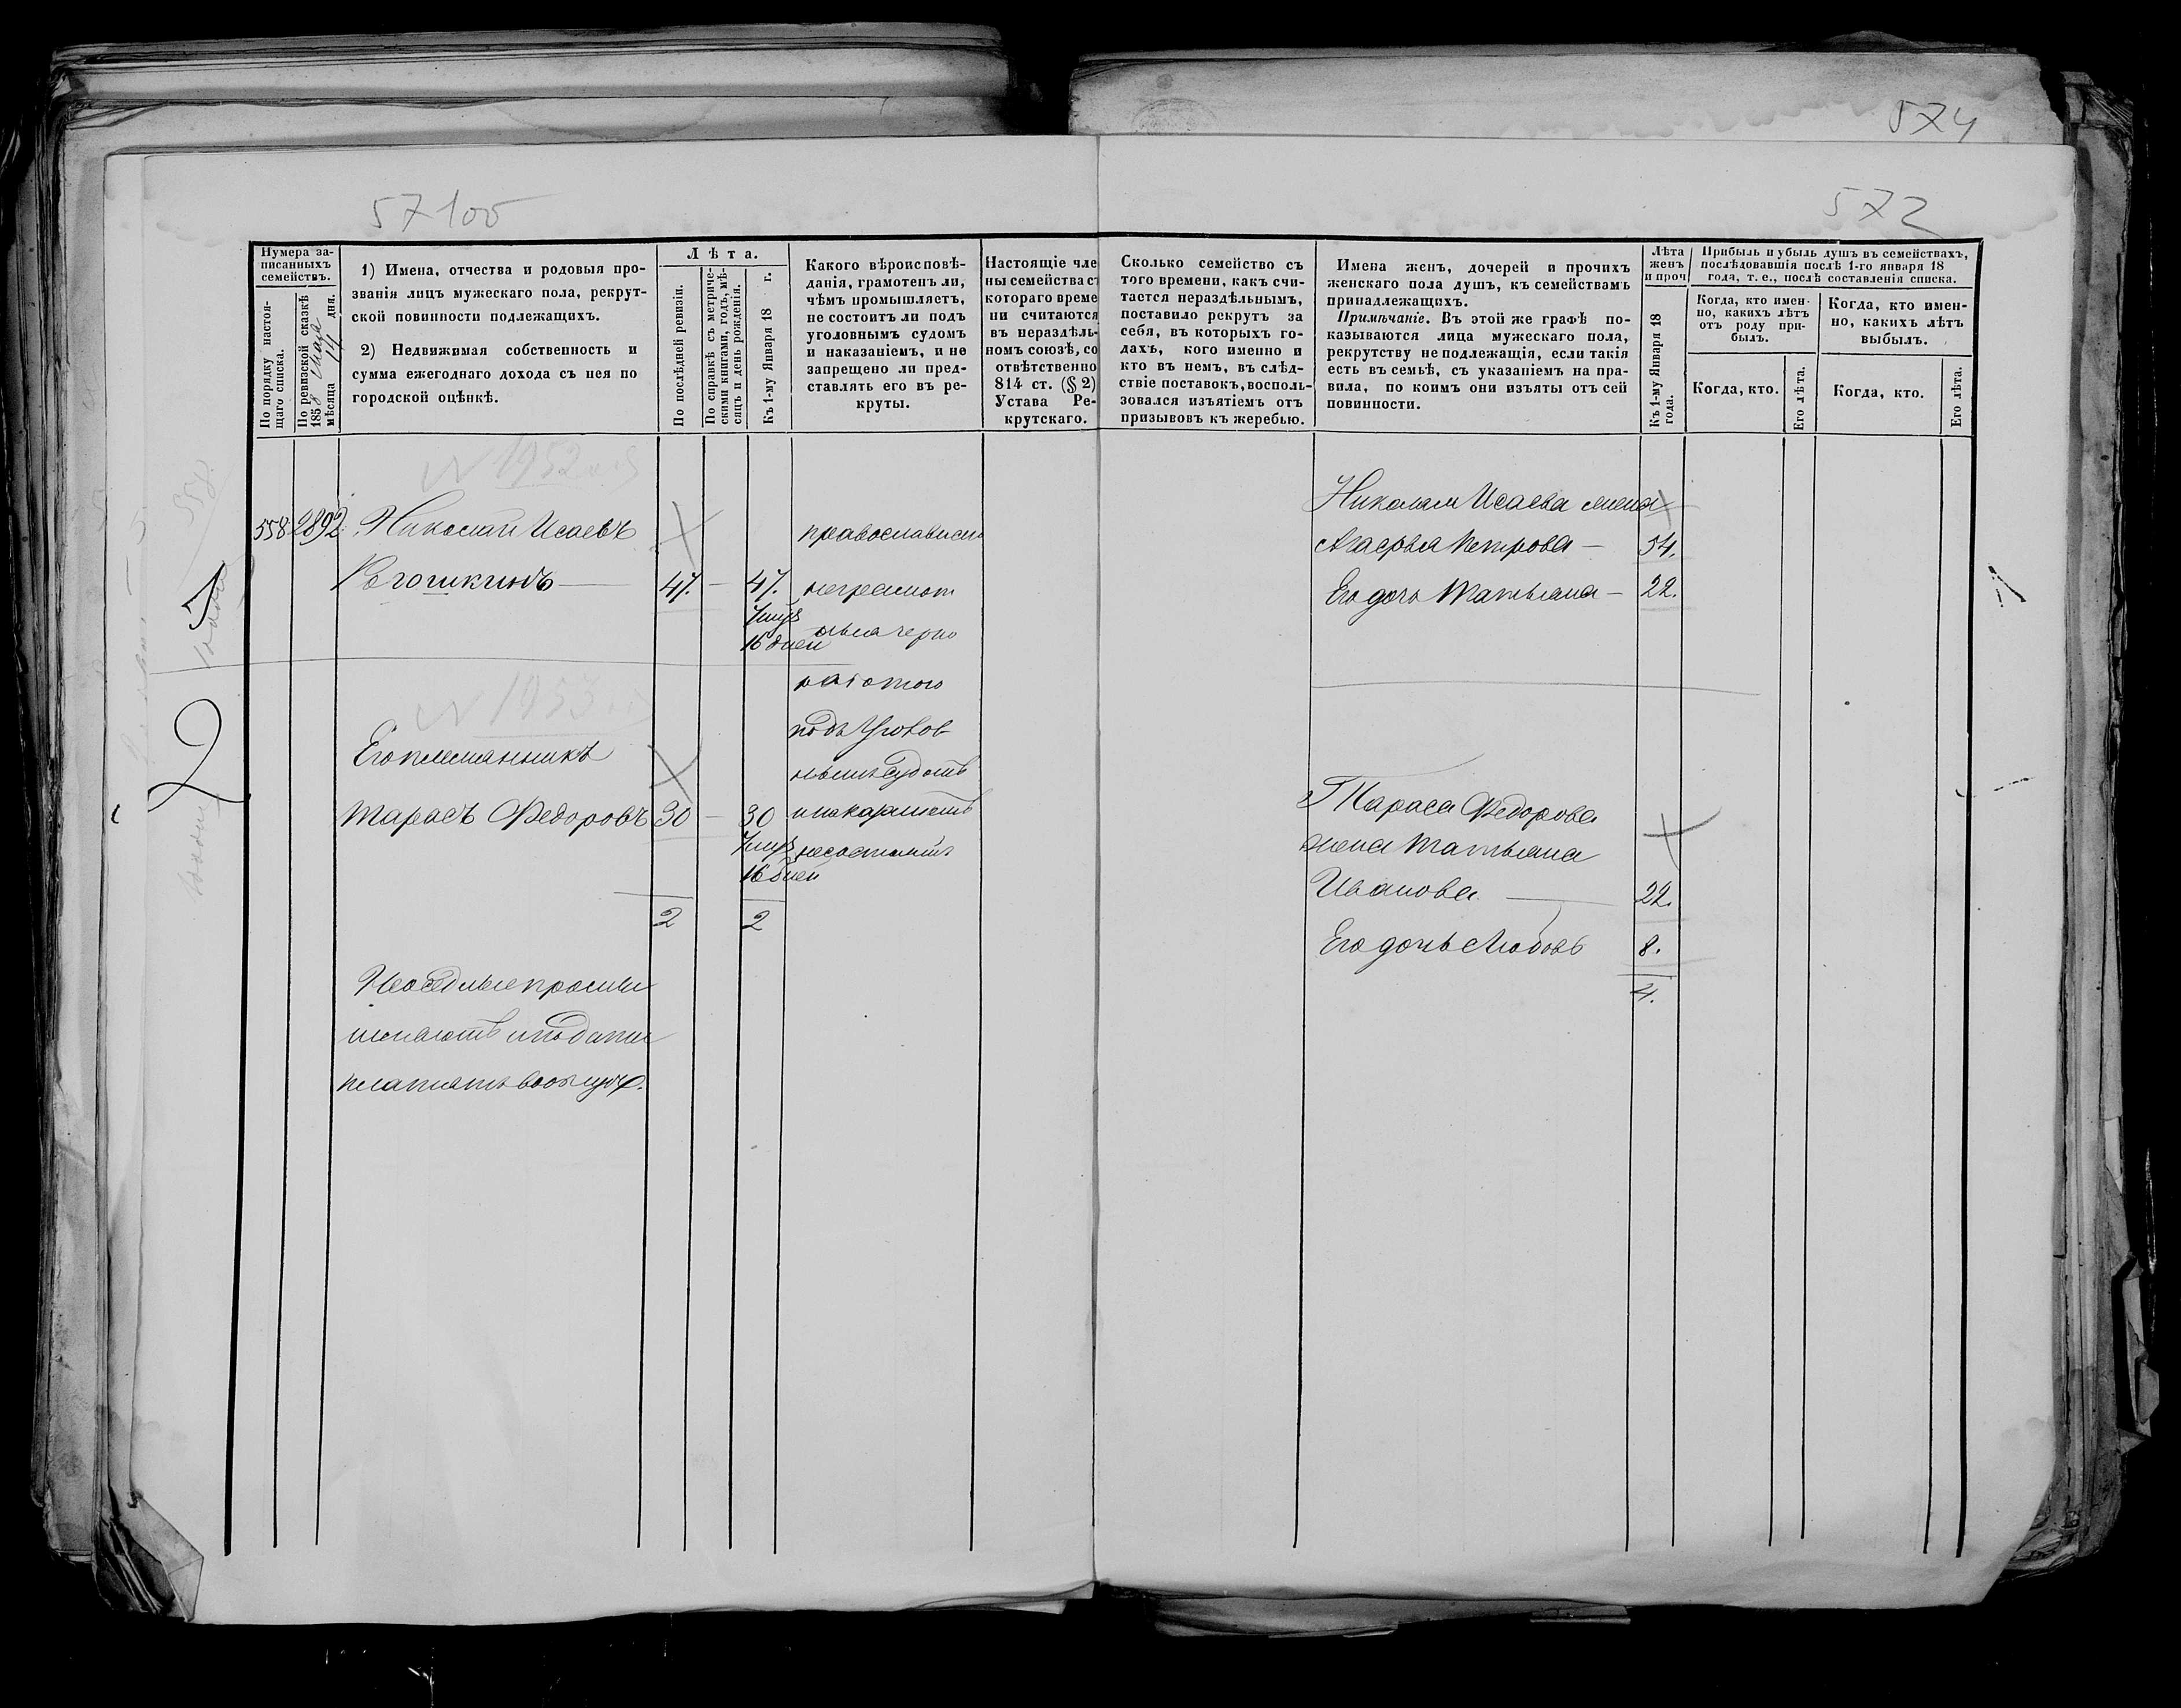 574
57100
572
Нумера за-
писанныхъ
семействъ.
По порядку настоя-
щаго списка.
По ревизской сказкѣ
1858 Мая
мѣсяца 14 дня.
1) Имена, отчества и родовыя про-
званія лицъ мужескаго пола, рекрут-
ской повинности подлежащихъ.
2) Недвижимая собственность и
сумма ежегоднаго дохода съ нея по
городской оцѣнкѣ.
Лѣта.
По послѣдней ревизіи.
По справкѣ съ метриче-
скими книгами, годъ, мѣ-
сяцъ и день рожденія.
Къ 1-му Января 18 г.
Какого вѣроисповѣ-
данія, грамотенъ ли,
чѣмъ промышляетъ,
не состоитъ ли подъ
уголовнымъ судомъ
и наказаніемъ, и не
запрещено ли пред-
ставлять его въ ре-
круты.
Настоящіе чле
ны семейства съ
котораго време
ни считаются
въ нераздѣль-
номъ союзѣ, со
отвѣтственно
814 ст. (§ 2)
Устава Ре-
крутскаго.
Сколько семейство съ
того времени, какъ счи-
тается нераздѣльнымъ,
поставило рекрутъ за
себя, въ которыхъ го-
дахъ, кого именно и
кто въ немъ, въ слѣд-
ствіе поставокъ, восполь-
зовался изъятіемъ отъ
призывовъ къ жеребью.
Имена женъ, дочерей и прочихъ
женскаго пола душъ, къ семействамъ
принадлежащихъ.
Примѣчаніе. Въ этой же графѣ по-
казываются лица мужескаго пола,
рекрутству не подлежащія, если такія
есть въ семьѣ, съ указаніемъ на пра-
вила, по коимъ они изъяты отъ сей
повинности.
Лѣта
женъ
и проч
Къ 1-му Января 18
года.
Прибыль и убыль душъ въ семействахъ,
послѣдовавшія послѣ 1-го января 18
года, т. е., послѣ составленія списка.
Когда, кто имен-
но, какихъ лѣтъ
отъ роду при-
былъ.
Когда, кто имен-
но, какихъ лѣтъ
выбылъ.
Когда, кто.
Его лѣта.
Когда, кто.
Его лѣта.
№ 1952
558 2892 Николай Исаевъ
47. — 47.
7 мѣс
16 дней
православнаго
неграмот
ный черно
работою
подъ Уголов
нымъ судомъ
и наказаніемъ
несостоитъ
№ 1953
Его племянникъ
Тарасъ Федоровъ 30 — 30
7 мѣс
16 дней
2 2
платятъ вообще.
Николая Исаева жена
Агафья Петрова — 54.
Его дочь Татьяна — 22.
Тараса Федорова
жена Татьяна
Иванова — 22.
Его дочь Любовь 8.
4.